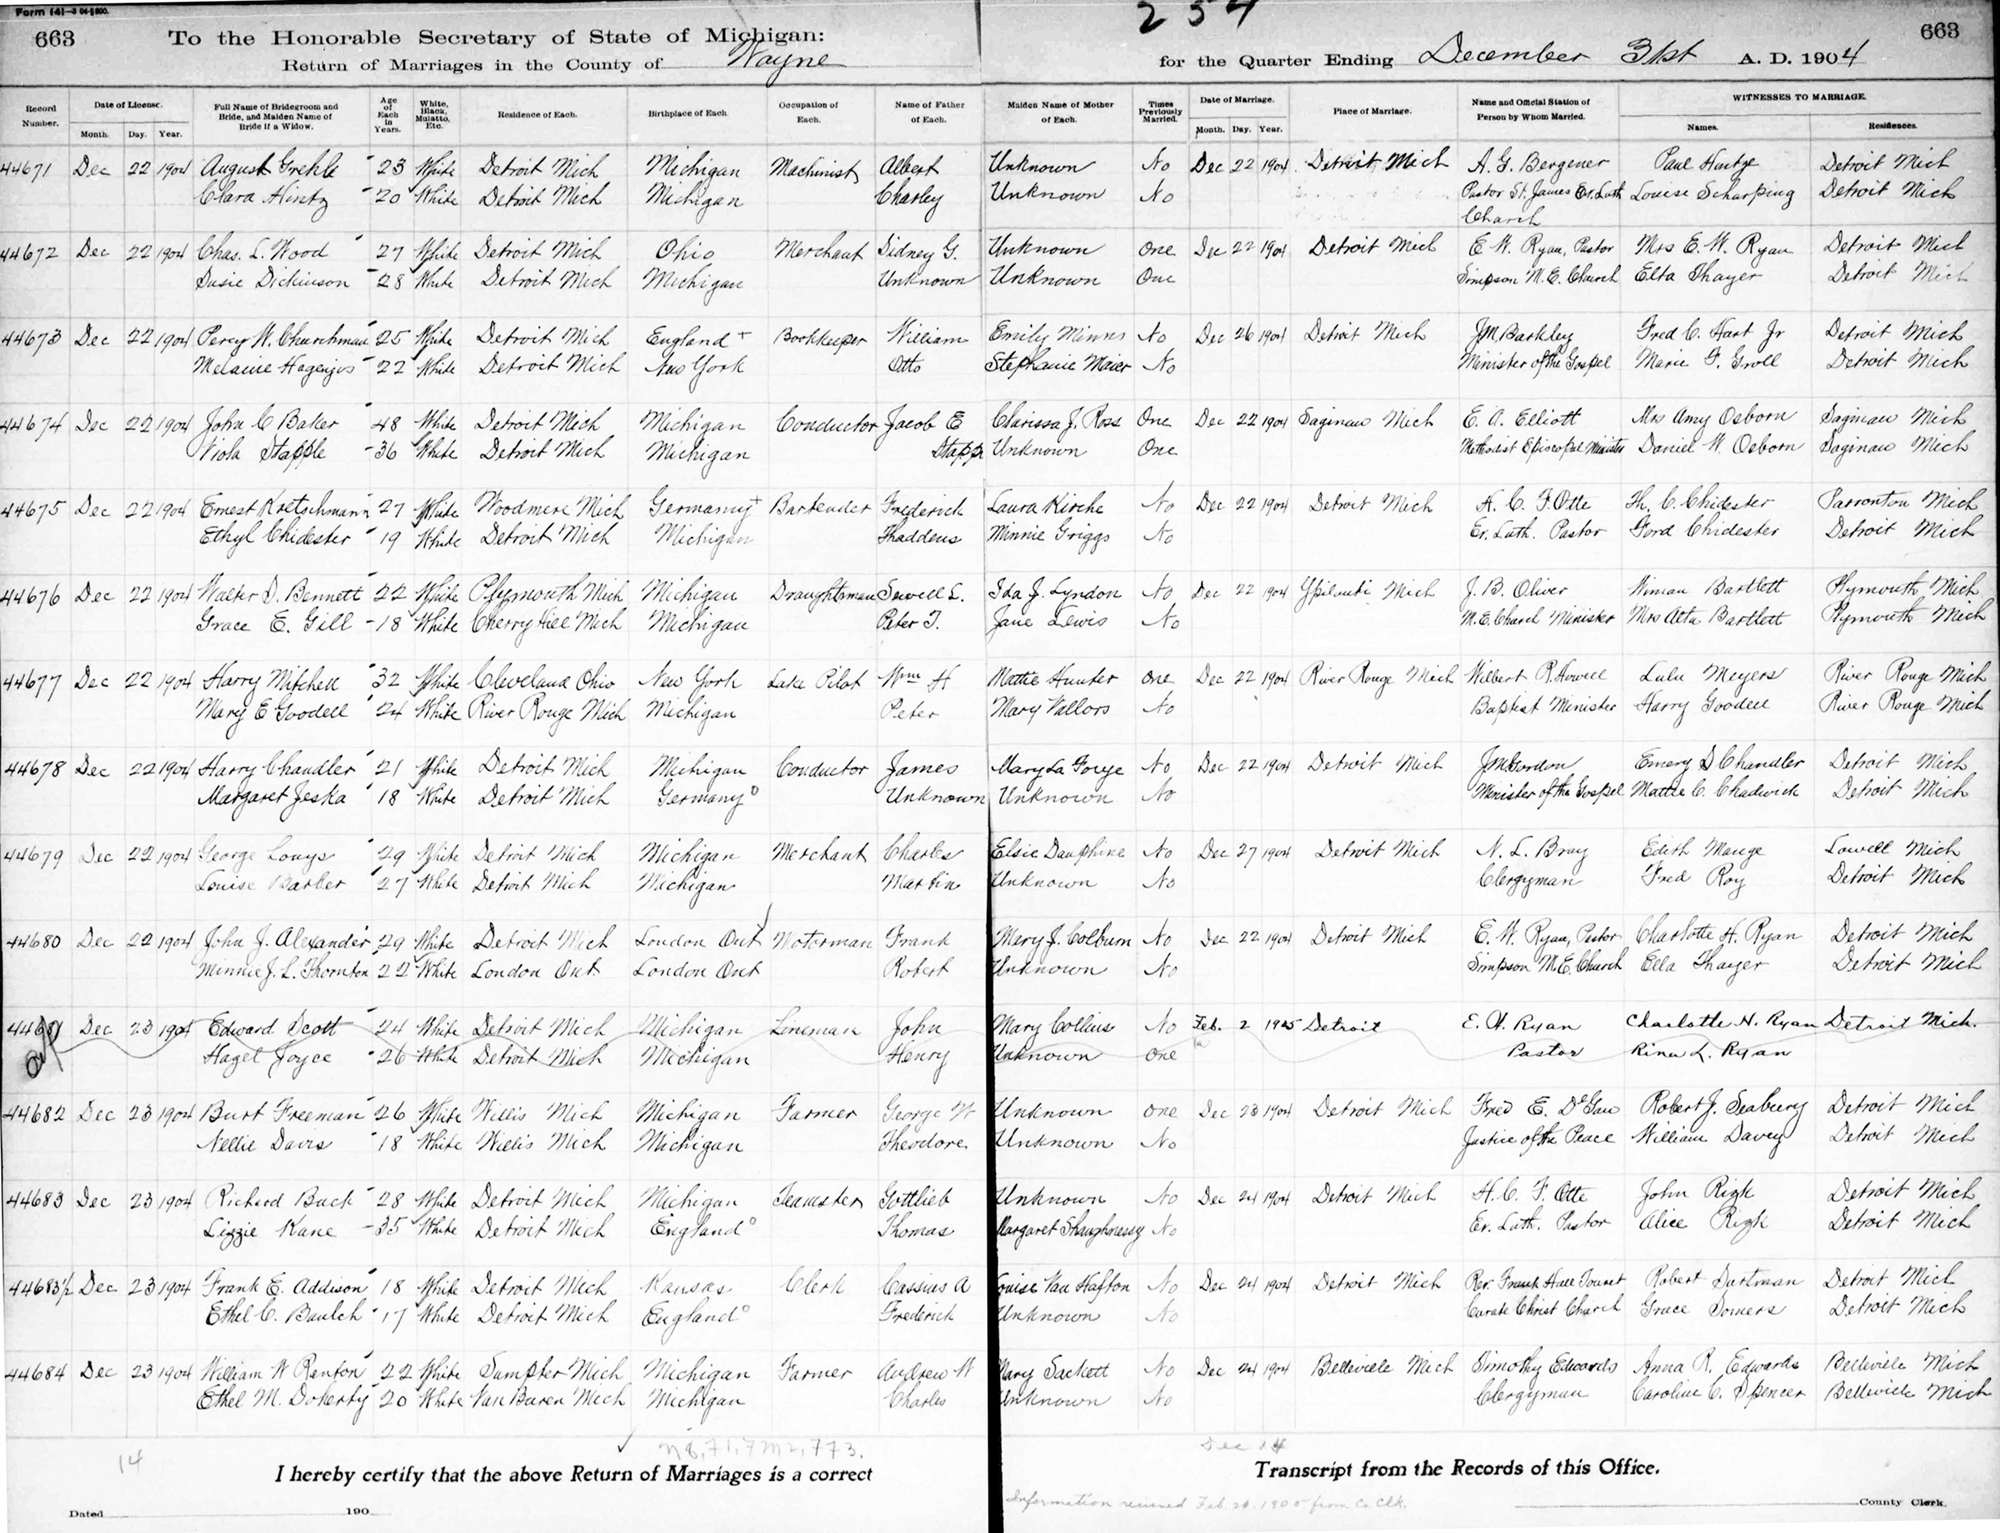 Form (4)-3 04-1500.
254
663 To the Honorable Secretary of State of Michigan: 663
Return of Marriages in the County of Wayne for the Quarter Ending December 31st A. D. 1904
Record Number. Date of License. Month. Day. Year. Full Name of Bridegroom and Bride, and Maiden Name of Bride if a Widow. Age of Each in Years. White, Black, Mulatto, Etc. Residence of Each. Birthplace of Each. Occupation of Each. Name of Father of Each. Maiden Name of Mother of Each. Times Previously Married. Date of Marriage. Month. Day. Year. Place of Marriage. Name and Official Station of Person by Whom Married. WITNESSES TO MARRIAGE. Names. Residences.
44671 Dec 22 1904 August Grehle 23 White Detroit Mich Michigan Machinist Albert Unknown No Dec 22 1904 Detroit Mich A. G. Bergener Paul Hintze Detroit Mich
Clara Hintz 20 White Detroit Mich Michigan Charley Unknown No Pastor St. James Ev. Luth Louise Scharping Detroit Mich
Church
44672 Dec 22 1904 Chas. L. Wood 27 White Detroit Mich Ohio Merchant Sidney G. Unknown One Dec 22 1904 Detroit Mich E. W. Ryan, Pastor Mrs E. W. Ryan Detroit Mich
Susie Dickinson 28 White Detroit Mich Michigan Unknown Unknown One Simpson M. E. Church Ella Thayer Detroit Mich
44673 Dec 22 1904 Percy W. Churchman 25 White Detroit Mich England + Bookkeeper William Emily Minns No Dec 26 1904 Detroit Mich J M Barkley Fred C. Hart Jr Detroit Mich
Melanie Hagenjos 22 White Detroit Mich New York Otto Stephanie Maier No Minister of the Gospel Marie F. Groll Detroit Mich
44674 Dec 22 1904 John C Baker 48 White Detroit Mich Michigan Conductor Jacob E Clarissa J. Ross One Dec 22 1904 Saginaw Mich E. A. Elliott Mrs Amy Osborn Saginaw Mich
Viola Stapple 36 White Detroit Mich Michigan Stapp Unknown One Methodist Episcopal Minister Daniel W. Osborn Saginaw Mich
44675 Dec 22 1904 Ernest Kretschmann 27 White Woodmere Mich Germany + Bartender Frederick Laura Kirche No Dec 22 1904 Detroit Mich H. C. F. Otte Th. C. Chidester Mich
Ethyl Chidester 19 White Detroit Mich Michigan Thaddeus Minnie Griggs No Ev. Luth. Pastor Ford Chidester Detroit Mich
44676 Dec 22 1904 Walter D. Bennett 22 White Plymouth Mich Michigan Draughtsman Sewell L. Ida J. Lyndon No Dec 22 1904 Ypsilanti Mich J. B. Oliver Wiman Bartlett Plymouth Mich
Grace E. Gill 18 White Cherry Hill Mich Michigan Peter T. Jane Lewis No M. E. Church Minister Mrs Alta Bartlett Plymouth Mich
44677 Dec 22 1904 Harry Mitchell 32 White Cleveland Ohio New York Lake Pilot Wm H Mattie Hunter One Dec 22 1904 River Rouge Mich Wilbert R. Howell Lulu Meyers River Rouge Mich
Mary E Goodell 24 White River Rouge Mich Michigan Peter Mary Vallors No Baptist Minister Harry Goodell River Rouge Mich
44678 Dec 22 1904 Harry Chandler 21 White Detroit Mich Michigan Conductor James Mary La Forge No Dec 22 1904 Detroit Mich J M Gordon Emery D Chandler Detroit Mich
Margaret Jeska 18 White Detroit Mich Germany Unknown Unknown No Minister of the Gospel Mattie C. Chadwick Detroit Mich
44679 Dec 22 1904 George Louys 29 White Detroit Mich Michigan Merchant Charles Elsie Dauphine No Dec 27 1904 Detroit Mich N. L. Bray Edith Mange Lowell Mich
Louise Barber 27 White Detroit Mich Michigan Martin Unknown No Clergyman Fred Roy Detroit Mich
44680 Dec 22 1904 John J. Alexander 29 White Detroit Mich London Ont Motorman Frank Mary J. Colburn No Dec 22 1904 Detroit Mich E. W. Ryan, Pastor Charlotte H. Ryan Detroit Mich
Minnie J. L. Thornton 22 White London Ont London Ont Robert Unknown No Simpson M. E. Church Ella Thayer Detroit Mich
44681 Dec 23 1904 Edward Scott 24 White Detroit Mich Michigan Lineman John Mary Collins No Feb. 2 1905 Detroit E. W. Ryan Charlotte H. Ryan Detroit Mich.
Hazel Joyce 26 White Detroit Mich Michigan Henry Unknown One Pastor Rina L. Ryan
44682 Dec 23 1904 Burt Freeman 26 White Willis Mich Michigan Farmer George W Unknown One Dec 23 1904 Detroit Mich Fred E. DeGaw Robert J. Seabury Detroit Mich
Nellie Davis 18 White Willis Mich Michigan Theodore Unknown No Justice of the Peace William Davey Detroit Mich
44683 Dec 23 1904 Richard Buck 28 White Detroit Mich Michigan Teamster Gottlieb Unknown No Dec 24 1904 Detroit Mich H. C. F. Otte John Rizk Detroit Mich
Lizzie Kane 35 White Detroit Mich England Thomas Margaret Shaughnessy No Ev. Luth. Pastor Alice Rizk Detroit Mich
44683½ Dec 23 1904 Frank E. Addison 18 White Detroit Mich Kansas Clerk Cassius A Louise Van Hafton No Dec 24 1904 Detroit Mich Rev. Frank Hall Touret Robert Dartman Detroit Mich
Ethel C. Baulch 17 White Detroit Mich England Frederick Unknown No Curate Christ Church Grace Somers Detroit Mich
44684 Dec 23 1904 William W Renton 22 White Sumpter Mich Michigan Farmer Andrew W Mary Sackett No Dec 24 1904 Belleville Mich Timothy Edwards Anna R. Edwards Belleville Mich
Ethel M. Doherty 20 White Van Buren Mich Michigan Charles Unknown No Clergyman Caroline C. Spencer Belleville Mich
14 Dec 14
I hereby certify that the above Return of Marriages is a correct Transcript from the Records of this Office.
Information received Feb. 21. 1905 from Co. Clk.
Dated 190 County Clerk.